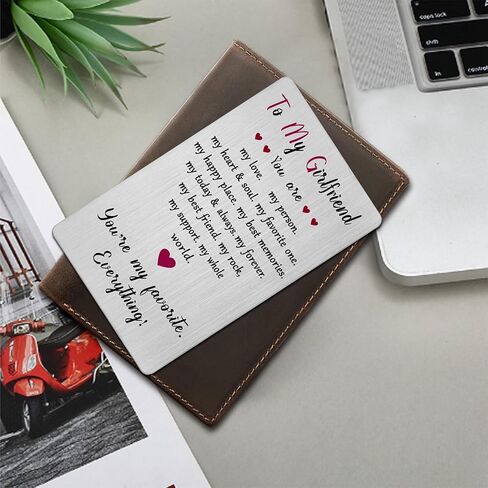 To My Girlfriend
You are
my love. my person.
my heart & soul. my favorite one.
my happy place. my best memories.
my today & always. my forever.
my best friend. my rock,
my support. my whole
world.
You're my favorite.
Everything!
caps lock
shift
fn
control